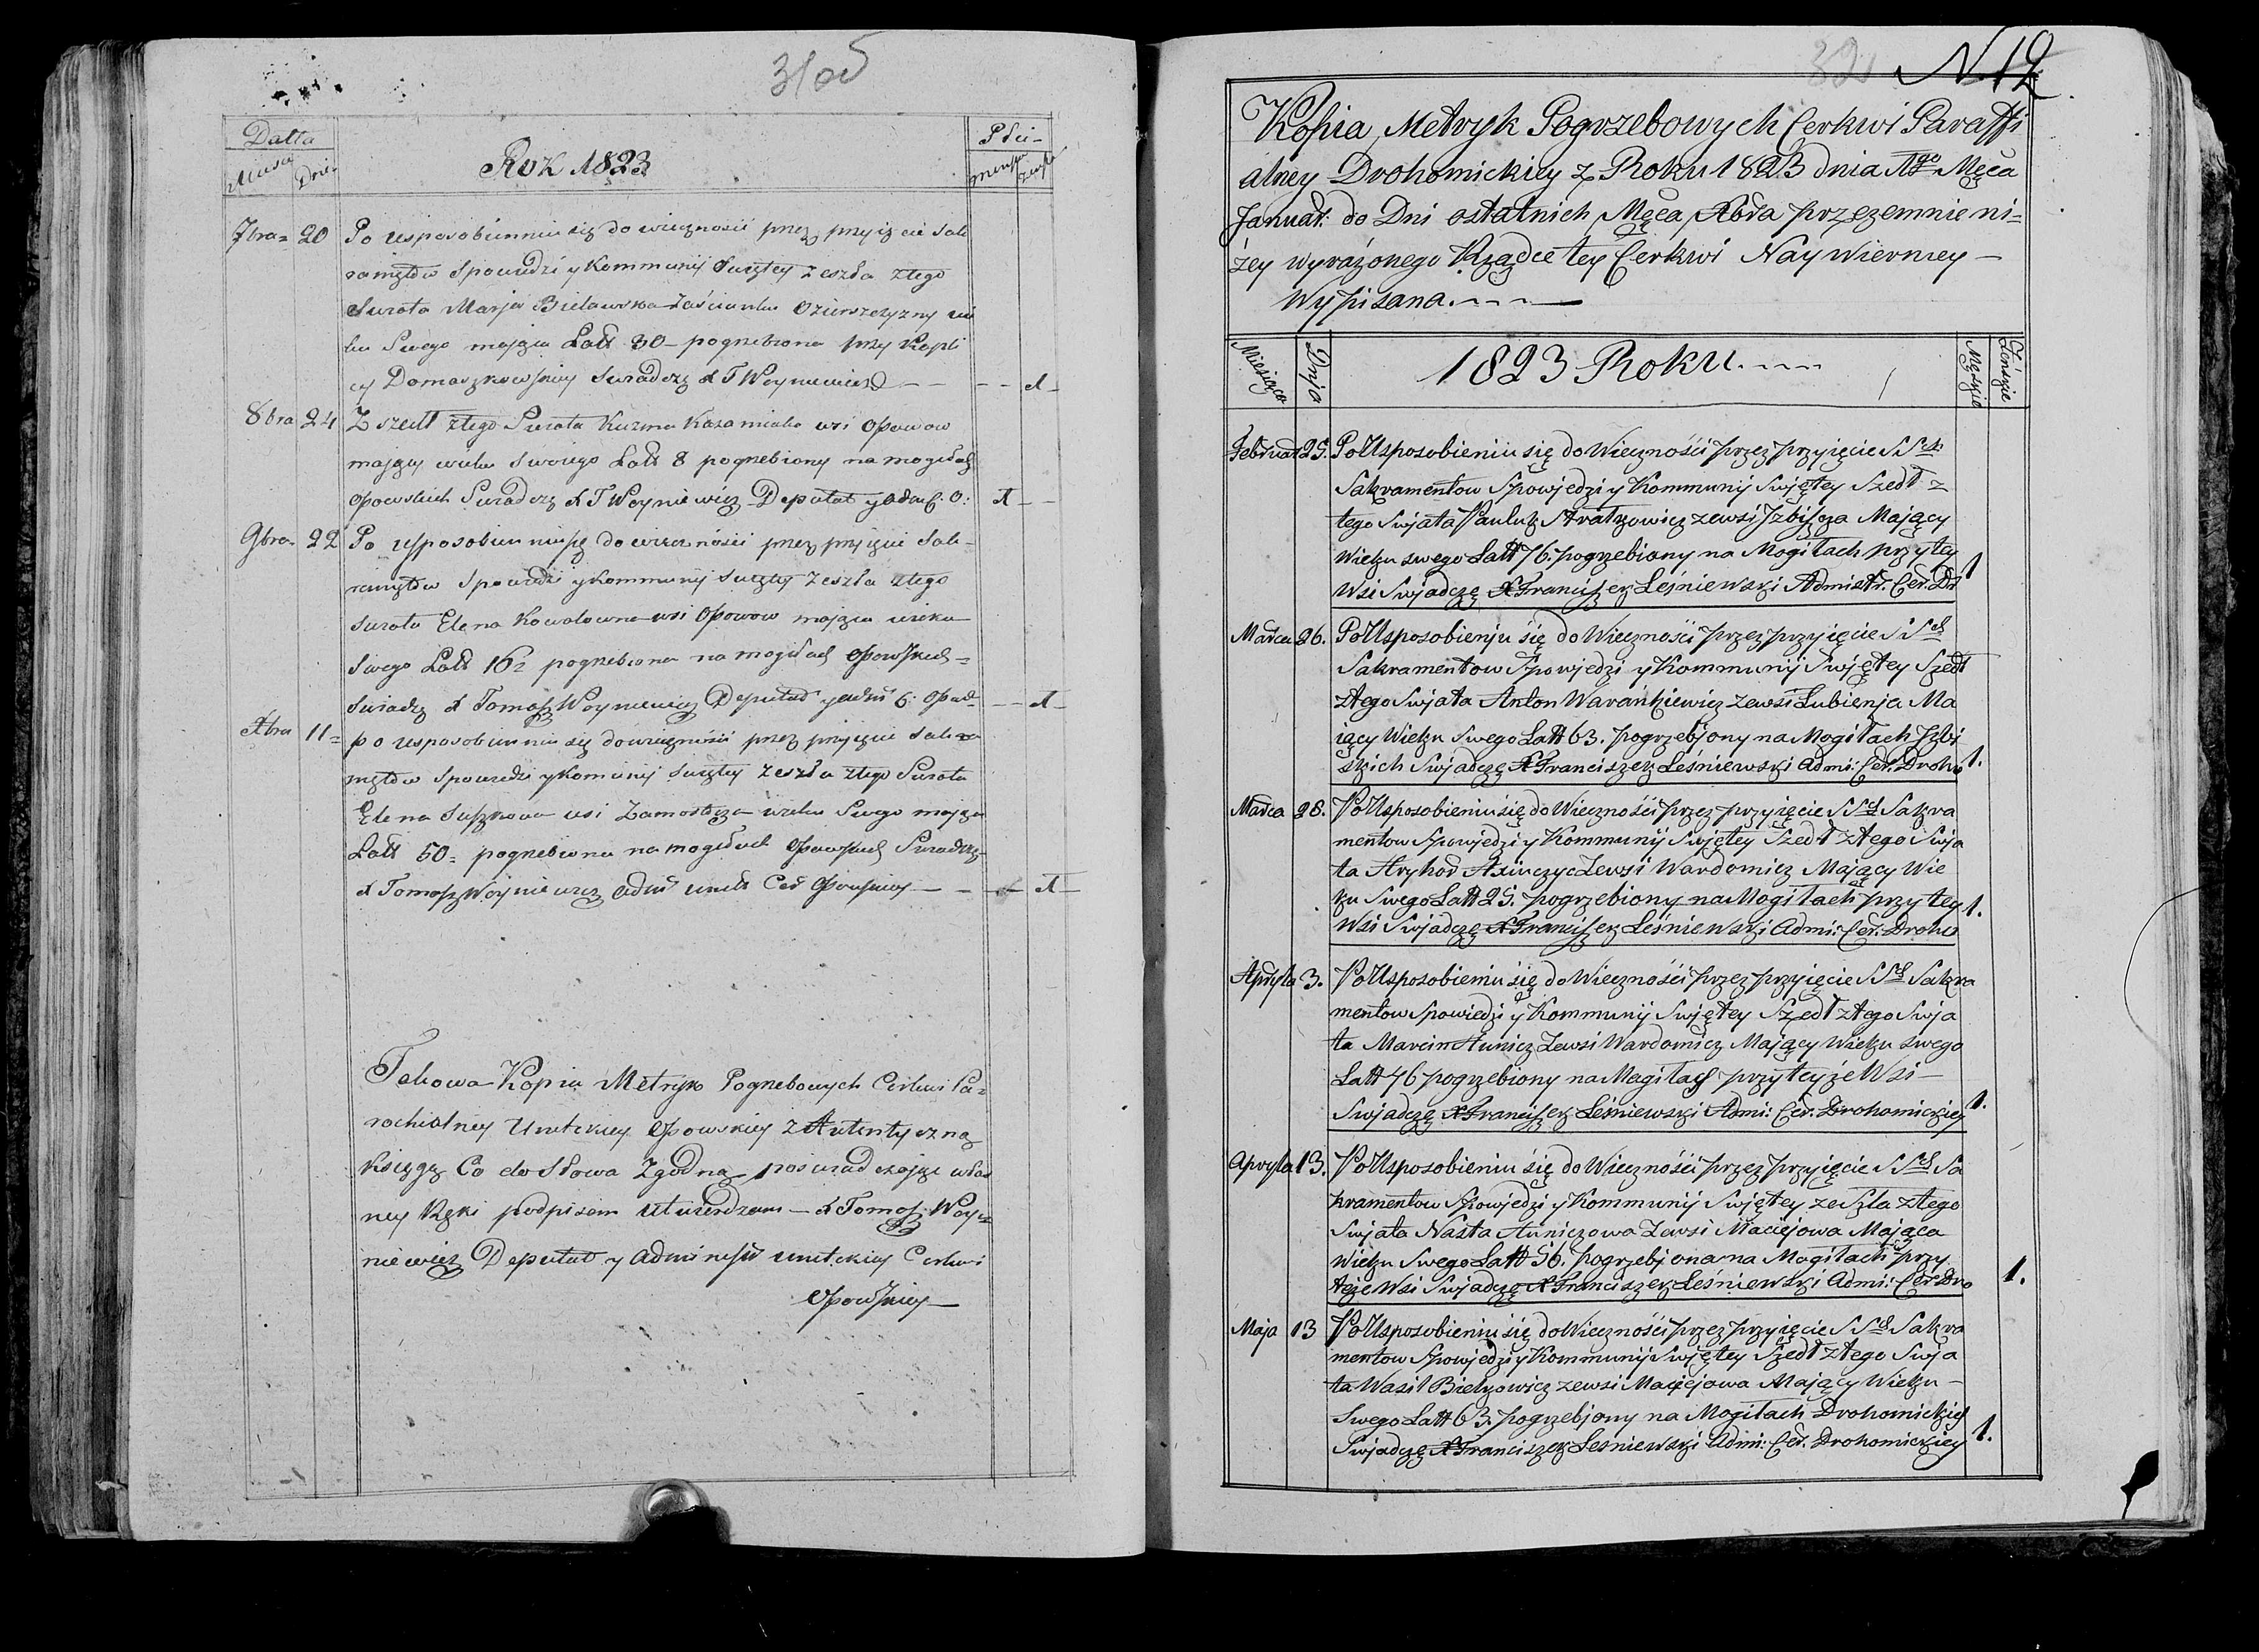 31об
Datta
Płci
Miesiąc
Dnie
Rok 1823
7bra 20 Po usposobienniu się do wieczności przez przyięcie Sak
ramętow Spowiedzi y Kommunij Swiętey zeszła ztego
Swiata Marja Bielawska Zaścianku Ozierszczyzny wie
ku Swego mająca Latt 30 pogrzebiona przy Kapli
cy Domaszkowskiey Swiadczę X T Woyniewicz
8bra 24 Zszedł ztego Swiata Kuzma wsi Opowow
mający wieku Swoiego Latt 8 pogrzebiony na mogiłach
Opowskich Swiadczę X T Woyniewicz Deputat y Adm C: O:
9bra 22 Po usposobienniu się do wieczności przez przyięcie Sak-
ramętow Spowiedzi y Kommunij Swiętey zeszła ztego
Swiata Elena Kowalowna wsi Opowow mająca wieku
Swego Latt 16 pogrzebiona na mogiłach Opowskich
Swiadczę X Tomasz Woyniewicz Deputat y Adm C: Opow
Xbra 11 po usposobienniu się do wieczności przez przyięcie Sakra
mętow Spowiedzi y Komunij Swiętey zeszła ztego Swiata
Elena Suszkowa wsi Zamoszcza wieku Swego mająca
Latt 50 pogrzebiona na mogiłach Opowskich Swiadczę
X Tomasz Woyniewicz Adm Unick Cer Opowskiey
Takowa Kopia Metryk Pogrzebowych Cerkwi Pa-
rochialney Unitckiey Opowskiey z Autentyczną
Księgą Co do Słowa Zgodną poswiadczając włas
ney Ręki podpisem utwierdzam X Tomasz Woy-
niewicz Deputat y Administr Unitckiey Cerkwi
Opowskiey
32
N. 12
Kopia Metryk Pogrzebowych Cerkwi Paraffi
alney Drohomickiey z Roku 1823 dnia 1go Męca
Januar: do Dni ostatnich Męca Xbra przezemnie ni-
żey wyrażonego Rządce tey Cerkwi Naywierniey
Wypisana.
Miesiąca
Dnia
1823 Roku
Męszcie
Żeńszie
Februar 25. Po Usposobieniu się do Wieczności przez przyięcie SSch
Sakramentow Spowjedzi y Kommunij Swjętey Szedł z
tego Swjata Pauluk Stratkowicz zewsi Izbiszcza Mający
Wieku swego Latt 76. pogrzebiony na Mogiłach przytey
Wsi Swjadczę X Franciszek Leśniewski Admistr. Cer. Dr 1
Marca 26. Po Usposobienju się do Wieczności przez przyięcie SSch
Sakramentow Spowjedzi y Kommunij Swjętey Szedł
ztego Swjata Anton Warankiewicz zewsi Łubienja Ma
jący Wieku Swego Latt 63. pogrzebjony na Mogiłach Izbi
skich Swjadczę X Franciszek Leśniewski Admi: Cer. Droho 1.
Marca 28. Po Usposobieniu się do Wieczności przez przyięcie SSch Sakra
mentow Spowjedzi y Kommunij Swjętey Szedł ztego Swja
ta Hryhor Axinczyc Zewsi Wardomicz Mający Wie
ku Swego Latt 25. pogrzebiony na Mogiłach przy tey
Wsi Swjadczę X Franciszek Leśniewski Admi: Cer. Droho 1.
Apryla 3. Po Usposobieniu się do Wieczności przez przyięcie SSch Sakra
mentow Spowiedzi y Kommunij Swjętey Szedł ztego Swja
ta Marcin Hunicz Zewsi Wardomicz Mający Wieku swego
Latt 76 pogrzebiony na Magiłach przyteyże Wsi
Swjadczę X Franciszek Leśniewski Admi: Cer. Drohomickiey 1.
Apryla 13. Po Usposobieniu się do Wieczności przez przyięcie SSch Sa
kramentow Spowjedzi y Kommunij Swjętey zeszła ztego
Swjata Nasta Huniczowa Zewsi Maciejowa Mająca
Wieku Swego Latt 56. pogrzebjona na Mogiłach przy
teyże Wsi Swjadczę X Franciszek Leśniewski Admi: Cer. Dro 1.
Maja 13 Po Usposobieniu się do Wieczności przez przyięcie SSch Sakra
mentow Spowjedzi y Kommunij Swjętey Szedł ztego Swja
ta Wasil Bielkowicz zewsi Maciejowa Mający Wieku
Swego Latt 63. pogrzebjony na Mogiłach Drohomickich
Swjadczę X Franciszek Lesniewski Admi: Cer. Drohomickiey 1.